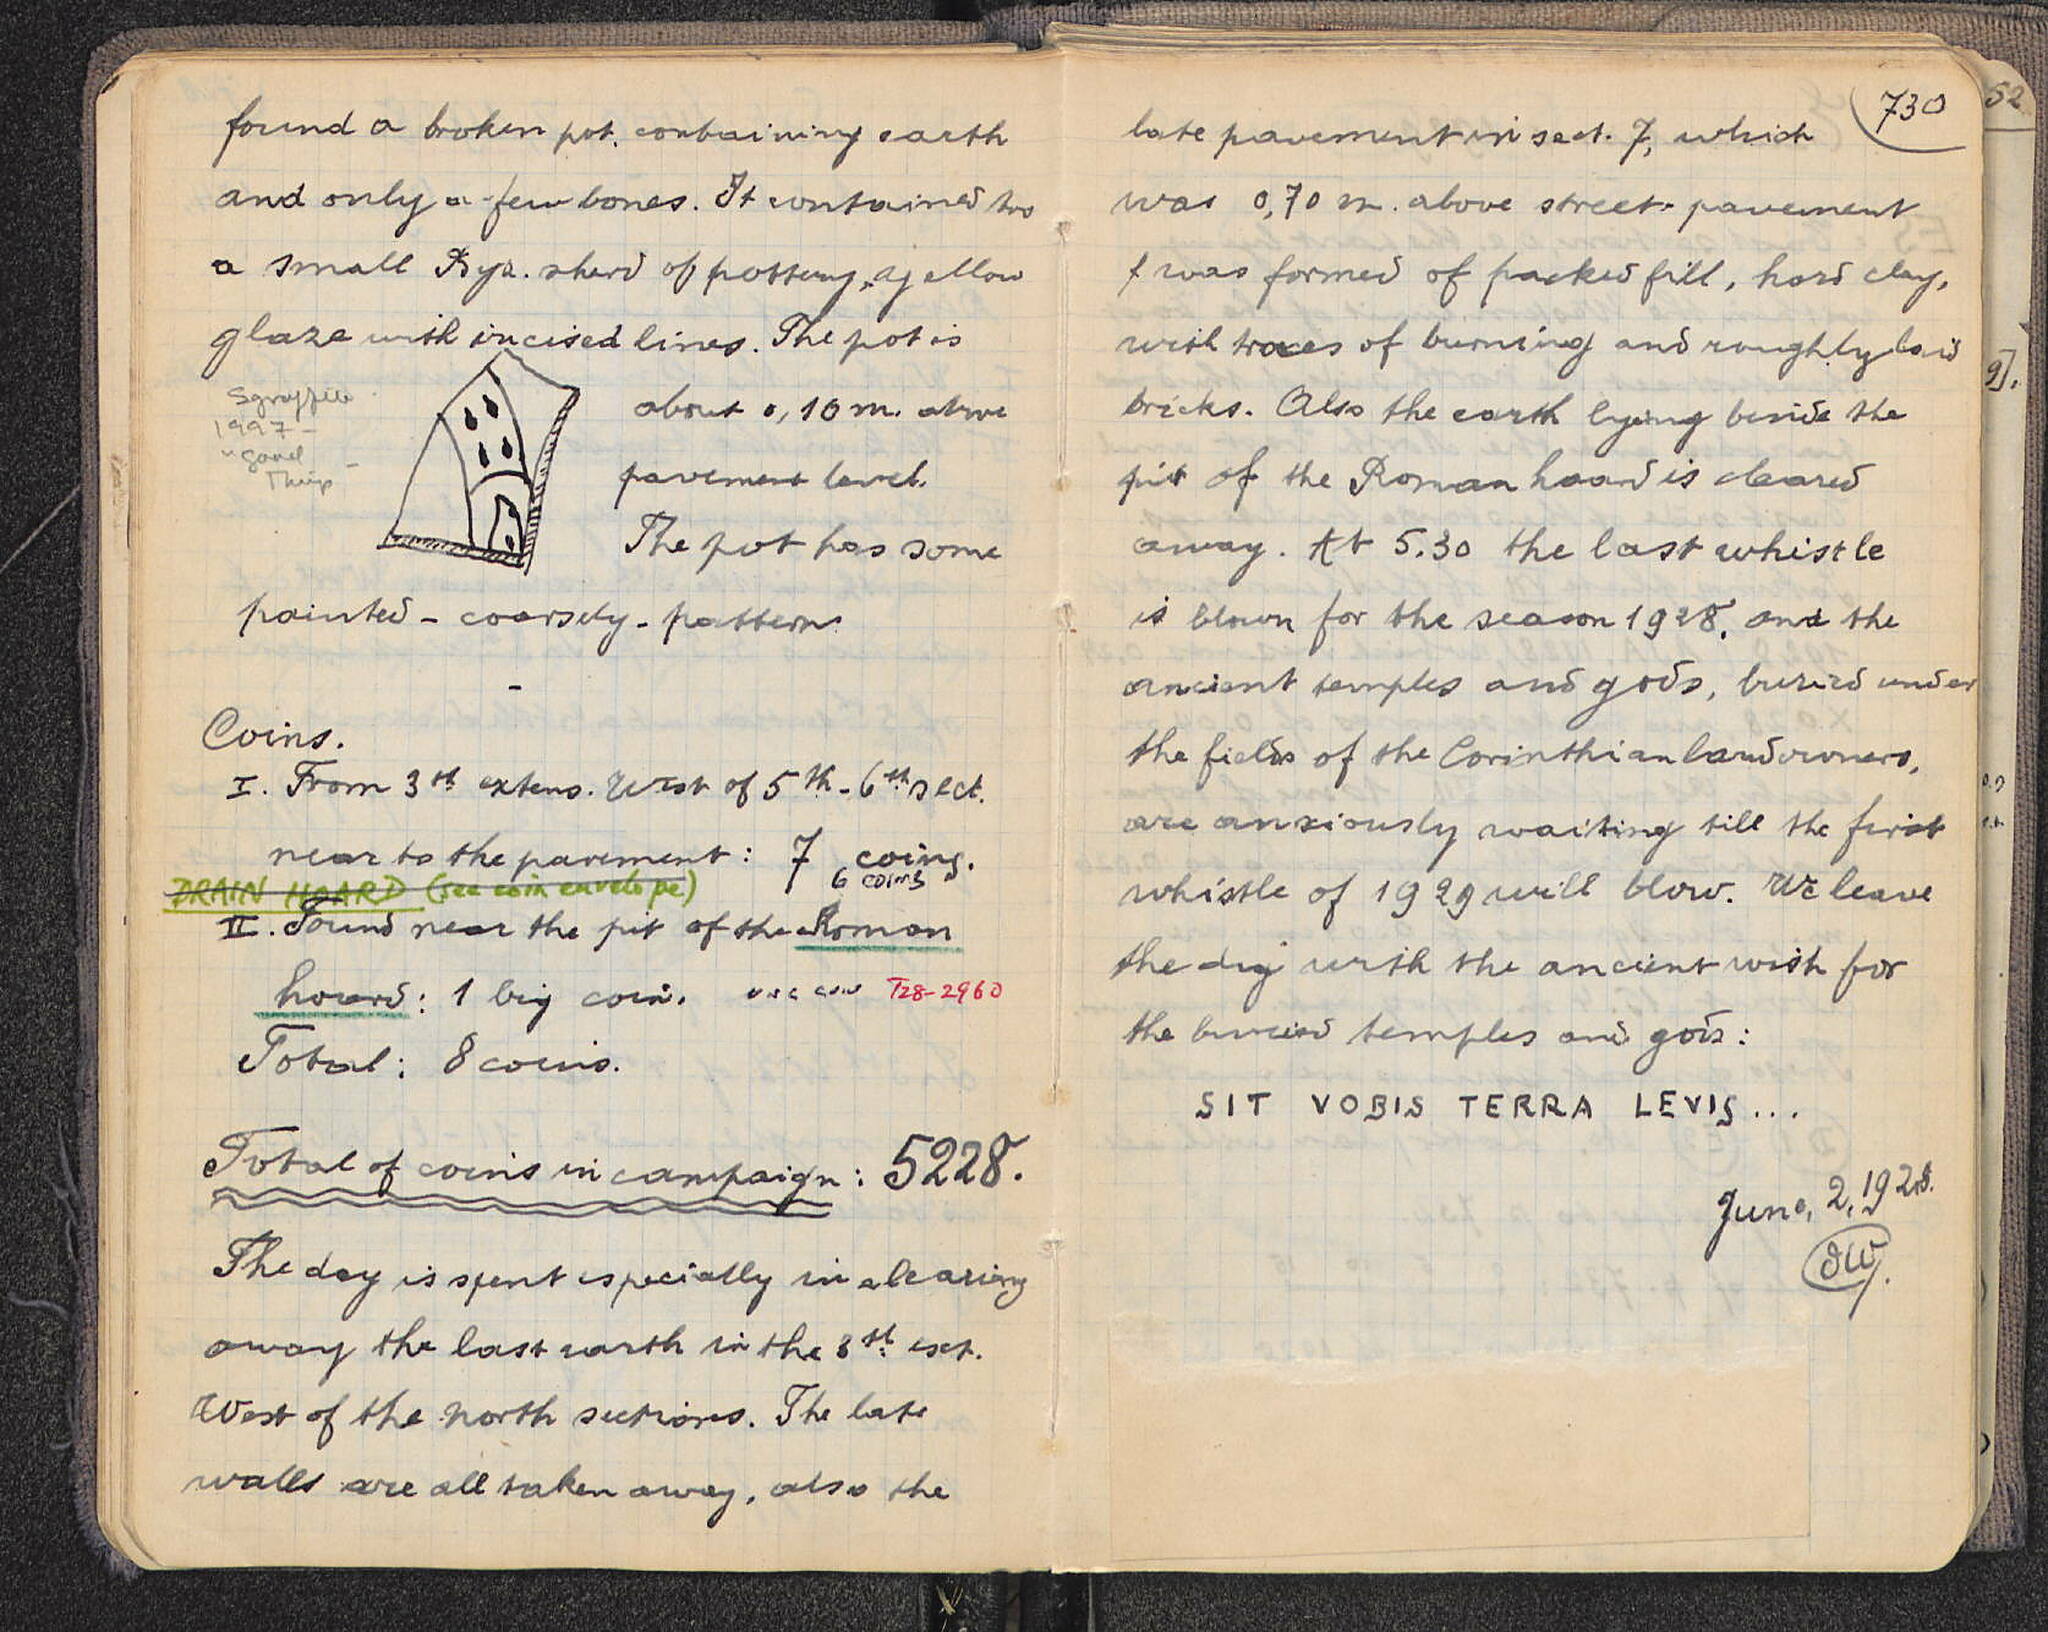 found a broken pot, containing earth
and only a few bones. It contained too
a small Byz. sherd of pottery, yellow
glaze with incised lines. The pot is
about 0,10 m. above
pavement level.
The pot has some
painted - coarsely - pattern.
Sgraffito
1997 -
Coins.
I. From 3st extens. West of 5th - 6th sect.
near to the pavement: 7 coins.
6 coins
DRAIN HOARD (see coin envelope)
II. Found near the pit of the Roman
hoard: 1 big coin. one coin T28-2960
Total: 8 coins.
Total of coins in campaign: 5228.
The day is spent especially in clearing
away the last earth in the 3st ext.
West of the north sections. The late
walls are all taken away, also the
730
late pavement in sect. 7, which
was 0,70 m. above street-pavement
& was formed of packed fill, hard clay,
with traces of burning and roughly laid
bricks. Also the earth lying beside the
pit of the Roman hoard is cleared
away. At 5.30 the last whistle
is blown for the season 1928, and the
ancient temples and gods, buried under
the fields of the Corinthian landowners,
are anxiously waiting till the first
whistle of 1929 will blow. We leave
the dig with the ancient wish for
the buried temples and gods:
SIT VOBIS TERRA LEVIS...
June, 2, 1928.
52
9].